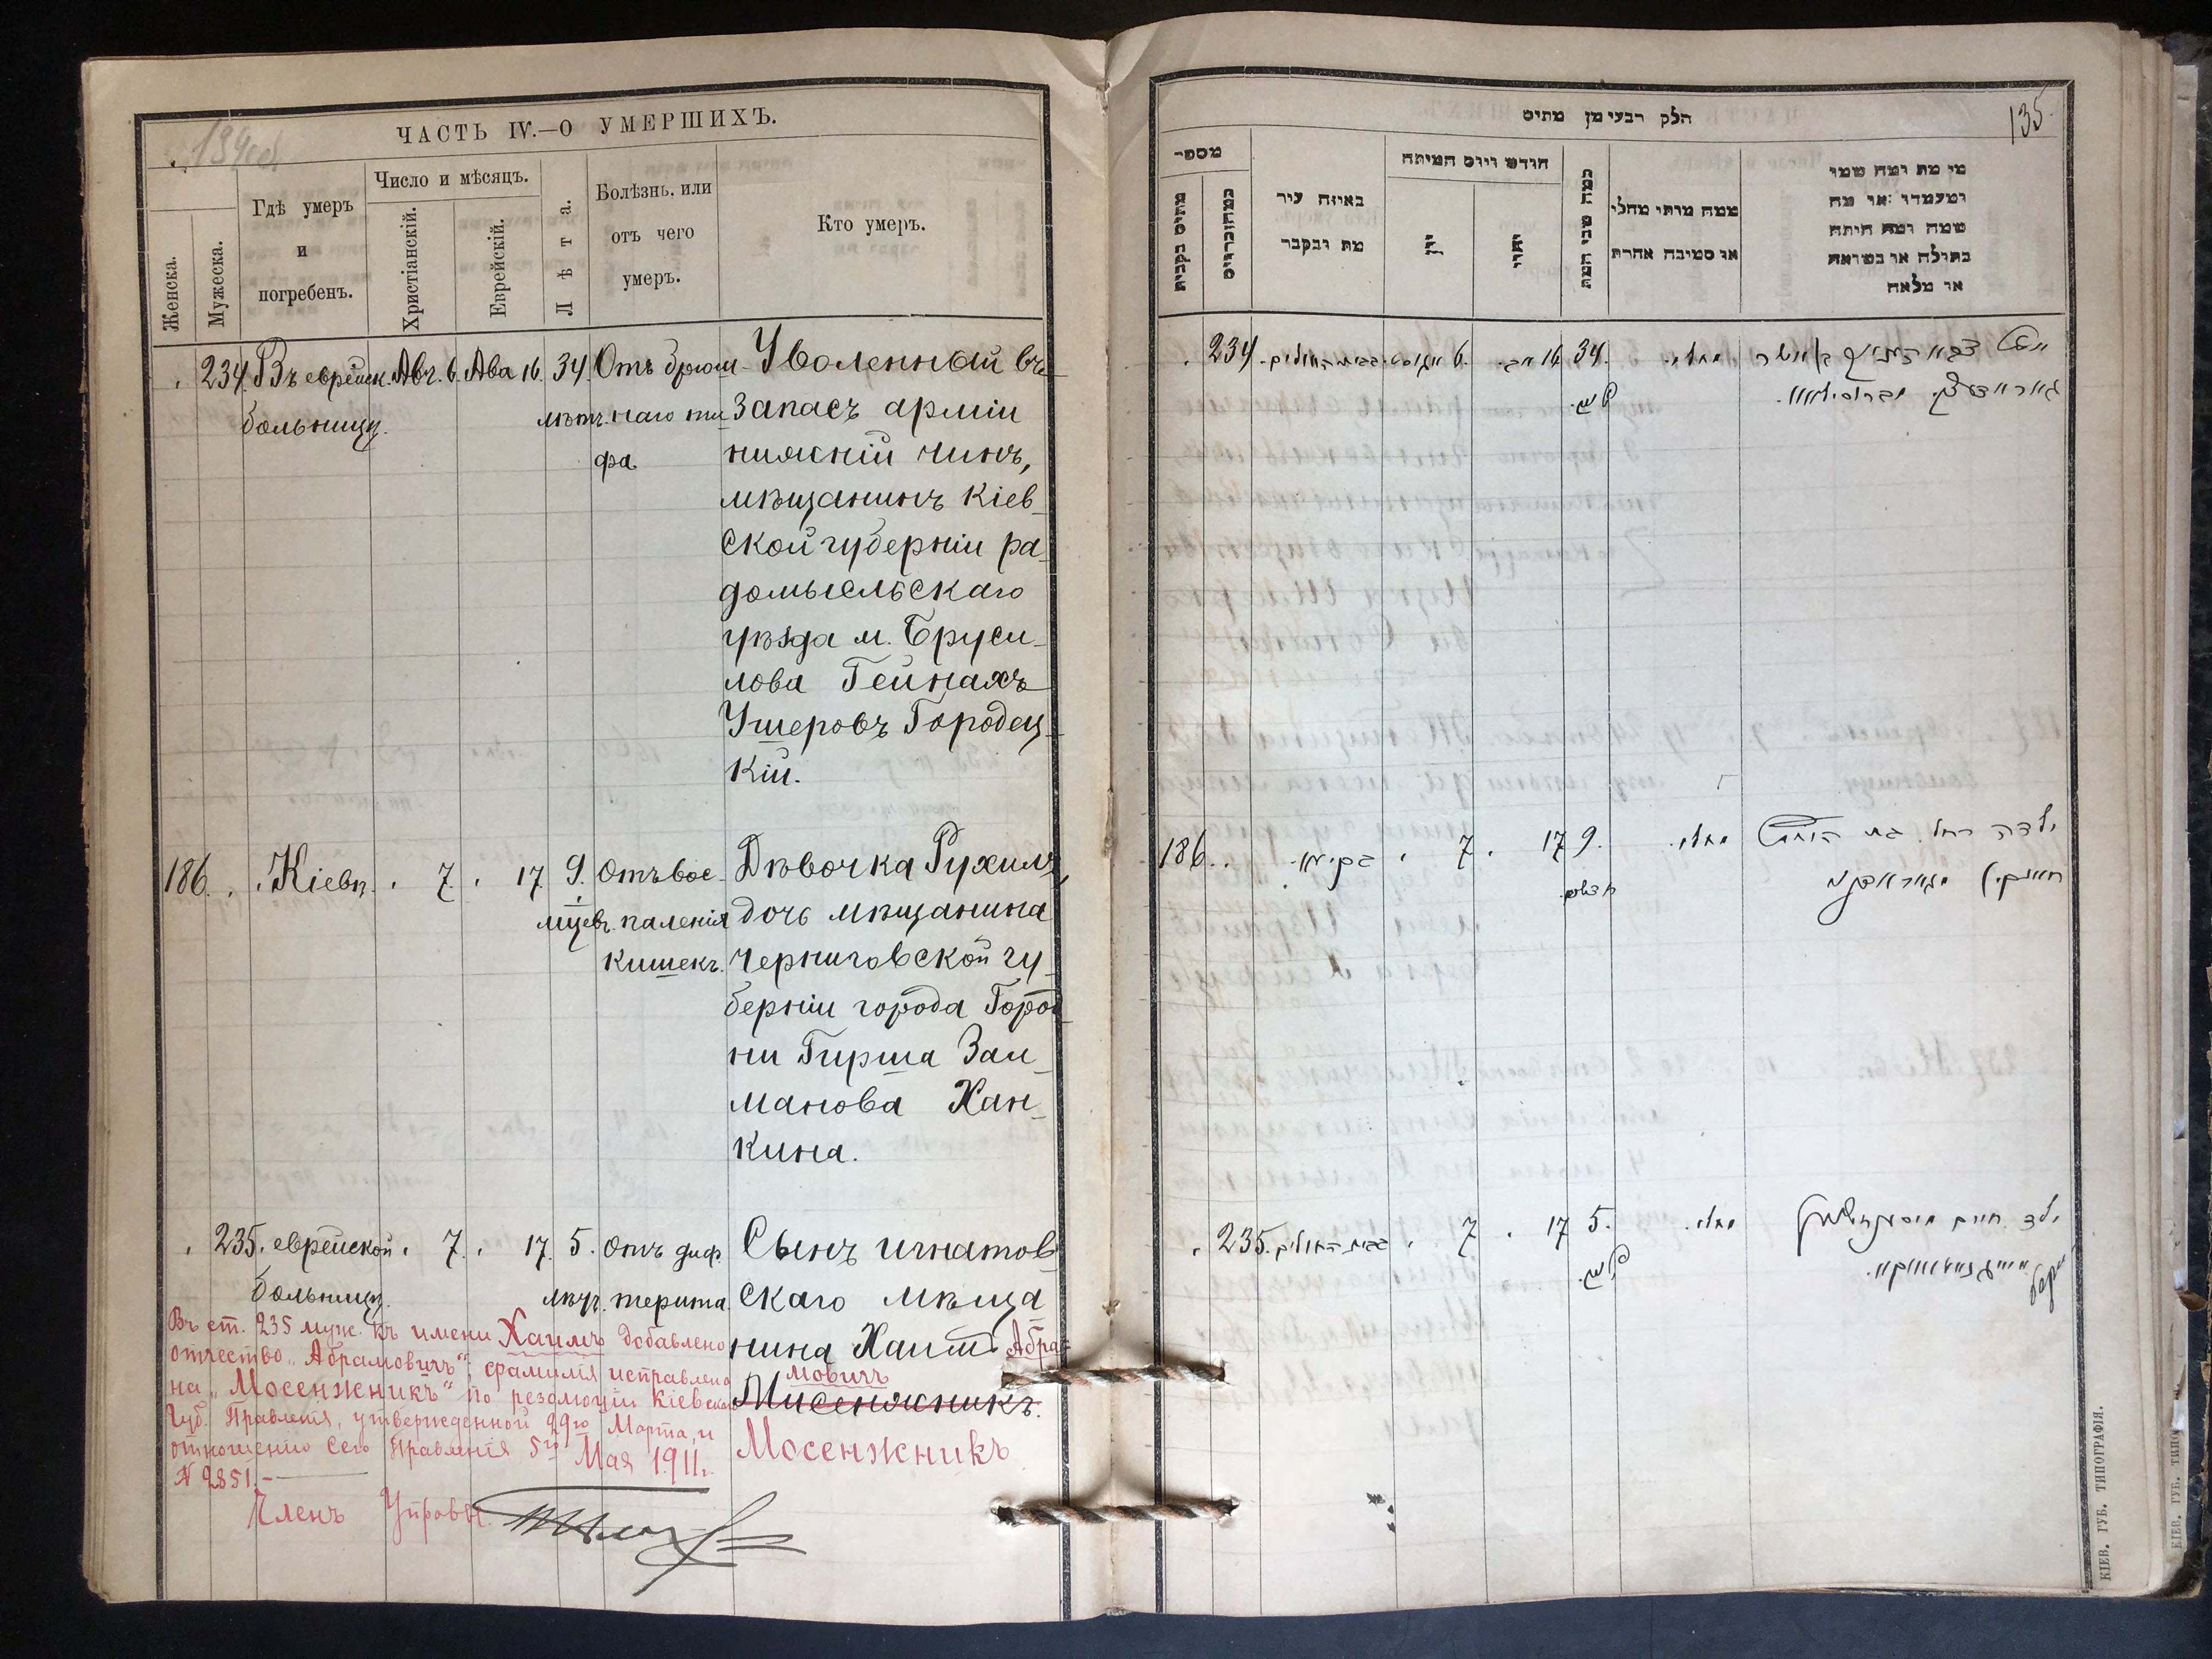 134об
ЧАСТЬ IV.—О УМЕРШИХЪ.
Женска.
Мужеска.
Гдѣ умеръ
и
погребенъ.
Число и мѣсяцъ.
Христіанскій.
Еврейскій.
Лѣта.
Болѣзнь, или
отъ чего
умеръ.
Кто умеръ.
234. Въ еврейск. Авг. 6. Ава 16. 34. Отъ брюш- Уволенный въ
больницѣ. лѣтъ. наго ти- запасъ арміи
фа нижній чинъ,
мѣщанинъ Кіев-
ской губерніи ра-
домысльскаго
уѣзда м. Бруси-
лова Гейнахъ
Ушеровъ Городец-
кій.
186. Кіевѣ. 7. 17 9. Отъ вос- Дѣвочка Рухиль,
мѣцев. паленія дочь мѣщанина
кишекъ. Черниговской гу-
берніи города Город-
ни Гирша Зал-
манова Хан-
кина.
235. еврейской 7. 17. 5. Отъ диф- Сынъ игнатов-
больницѣ. лѣтъ. терита скаго мѣща-
нина Хаимъ Абра-
мовичъ
Мисенжникъ.
Мосенжникъ
Въ ст. 235 муж. къ имени Хаимъ добавлено
отчество „Абрамовичъ“; фамилія исправлена
на „Мосенжникъ“ по резолюціи Кіевскаго
Губ. Правленія, утвержденной 29го Марта, и
отношенію сего Правленія 5го Мая 1911г.
N 2851.—
Членъ Управы
135.
חלק רביעי מן מתים
מספר
מתים נקבות
מהזכרים
באיזה עיר
מת ונקבר
חודש ויום המיתה
יון
יהודי
כמה שני המת
ממה מותו מחלי
או מסיבה אחרת
מי מת ומה שמו
ומעמדו או מה
שמה ומה היתה
בתולה או נשואה
או מלאה
234. בבית החולים. 6 אוגוסט 16 אב. 34. מחלי.
186. 7. 17 9. מחלי. ילדה רחל בת
235. בבית החולים. 7. 17 5. מחלי. ילד חיים
КІЕВ. ГУБ. ТИПОГРАФІЯ.
КІЕВ. ГУБ. ТИПО